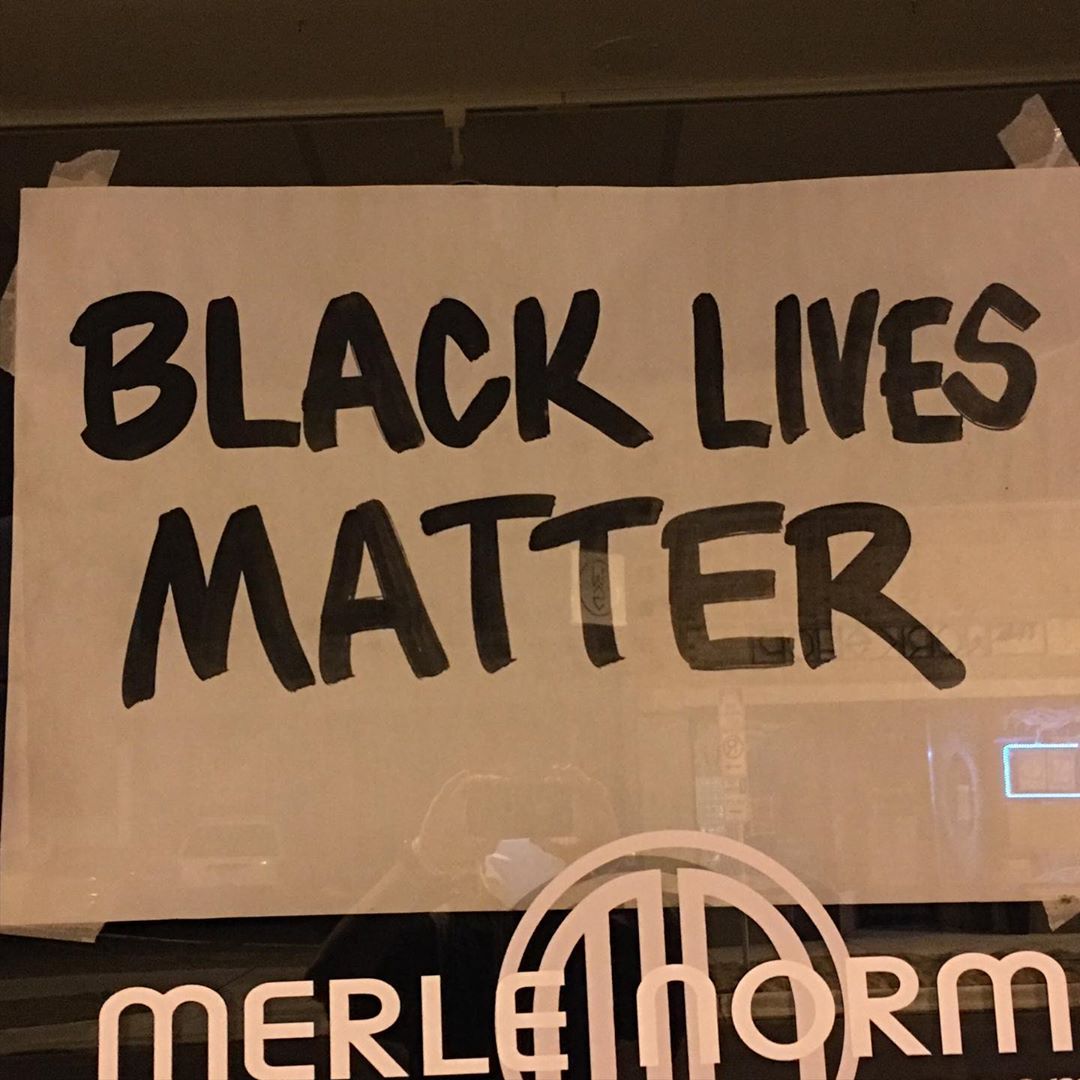 BLACK LIVES
MATTER
MERLE NORM